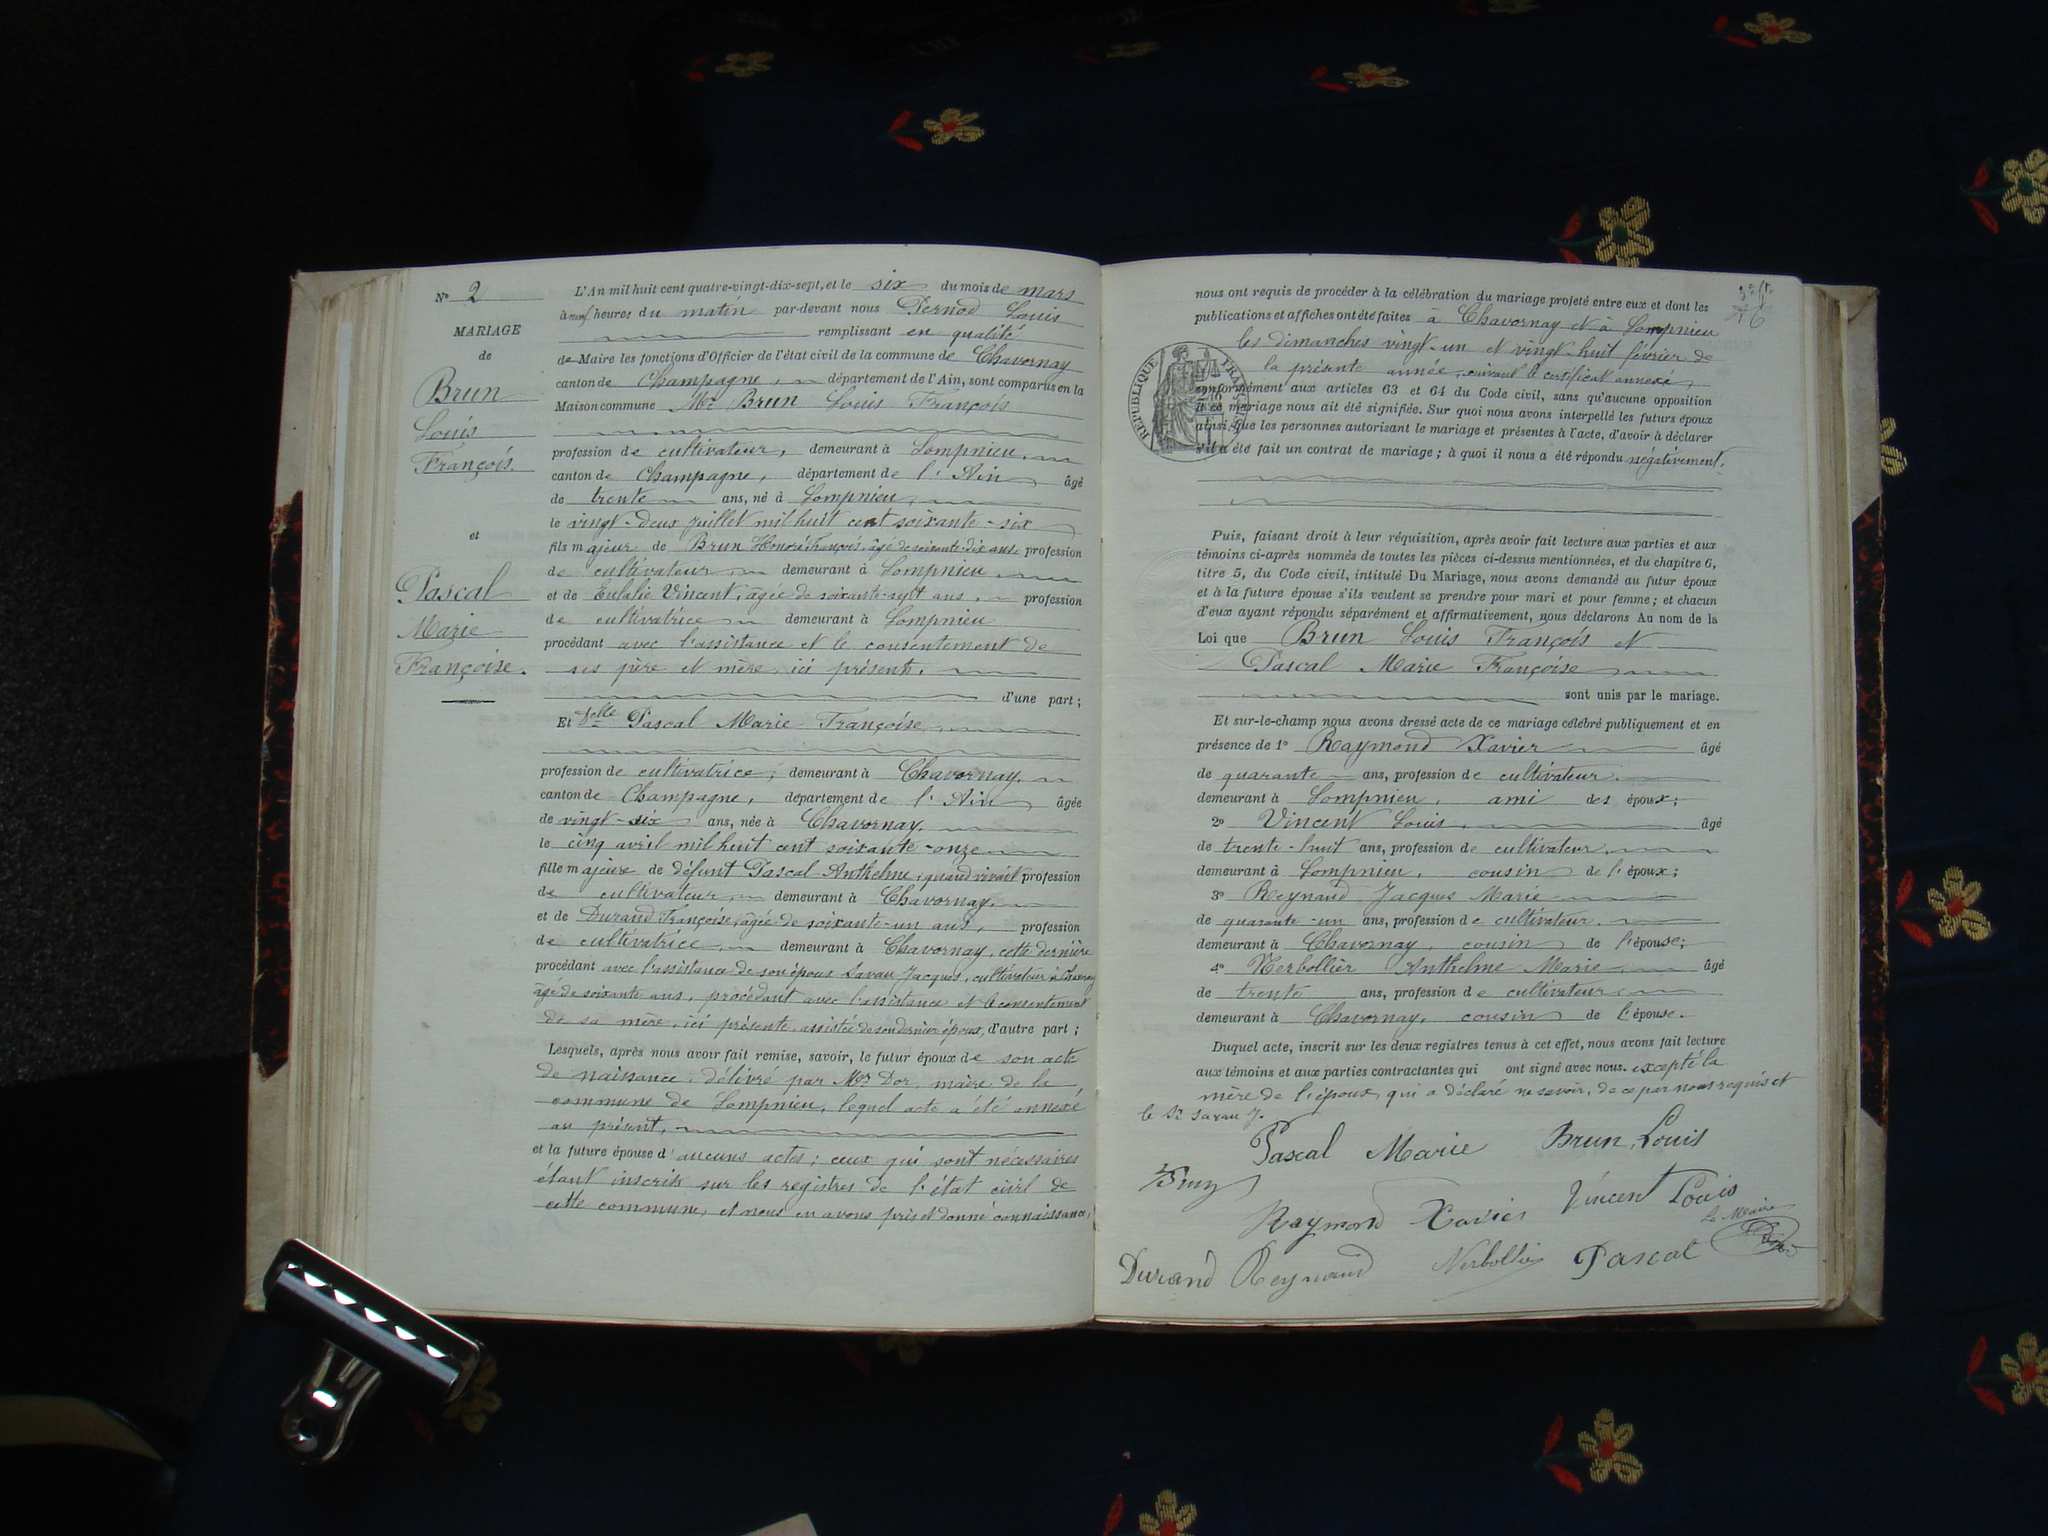 N° 2
MARIAGE
de
Brun
Louis
François.
et
Pascal
Marie
Françoise.
L'An mil huit cent quatre-vingt-dix-sept, et le six du mois de mars
à neuf heures du matin par-devant nous Pernod Louis
remplissant en qualité
de Maire les fonctions d'Officier de l'état civil de la commune de Chavornay
canton de Champagne, département de l'Ain, sont comparus en la
Maison commune Mr Brun Louis François
profession de cultivateur, demeurant à Lompnieu,
canton de Champagne, département de l'Ain âgé
de trente ans, né à Lompnieu,
le vingt-deux juillet mil huit cent soixante-six
fils majeur de Brun Honoré François, âgé de soixante-dix ans, profession
de cultivateur, demeurant à Lompnieu,
et de Eulalie Vincent, âgée de soixante-sept ans, profession
de cultivatrice, demeurant à Lompnieu
procédant avec l'assistance et le consentement de
ses père et mère, ici présents,
d'une part ;
Et delle Pascal Marie Françoise,
profession de cultivatrice, demeurant à Chavornay,
canton de Champagne, département de l'Ain âgée
de vingt-six ans, née à Chavornay,
le cinq avril mil huit cent soixante-onze
fille majeure de défunt Pascal Anthelme, quand vivait profession
de cultivateur, demeurant à Chavornay,
et de Durand Françoise, âgée de soixante-un ans, profession
de cultivatrice, demeurant à Chavornay, cette dernière
procédant avec l'assistance de son époux Savau Jacques, cultivateur à Chavornay
âgé de soixante ans, procédant avec l'assistance et le consentement
de sa mère, ici présente, assistée de son dernier époux, d'autre part ;
Lesquels, après nous avoir fait remise, savoir, le futur époux de son acte
de naissance, délivré par Mr Dor, maire de la
commune de Lompnieu, lequel acte a été annexé
au présent,
et la future épouse d'aucuns actes ; ceux qui sont nécessaires
étant inscrits sur les registres de l'état civil de
cette commune, et nous en avons pris et donné connaissance,
nous ont requis de procéder à la célébration du mariage projeté entre eux et dont les
publications et affiches ont été faites à Chavornay et à Lompnieu
les dimanches vingt-un et vingt-huit février de
la présente année, suivant le certificat annexé,
RÉPUBLIQUE FRANÇAISE
conformément aux articles 63 et 64 du Code civil, sans qu'aucune opposition
à ce mariage nous ait été signifiée. Sur quoi nous avons interpellé les futurs époux
ainsi que les personnes autorisant le mariage et présentes à l'acte, d'avoir à déclarer
s'il a été fait un contrat de mariage ; à quoi il nous a été répondu négativement.
Puis, faisant droit à leur réquisition, après avoir fait lecture aux parties et aux
témoins ci-après nommés de toutes les pièces ci-dessus mentionnées, et du chapitre 6,
titre 5, du Code civil, intitulé Du Mariage, nous avons demandé au futur époux
et à la future épouse s'ils veulent se prendre pour mari et pour femme ; et chacun
d'eux ayant répondu séparément et affirmativement, nous déclarons Au nom de la
Loi que Brun Louis François et
Pascal Marie Françoise
sont unis par le mariage.
Et sur-le-champ nous avons dressé acte de ce mariage célébré publiquement et en
présence de 1° Raymond Xavier âgé
de quarante ans, profession de cultivateur.
demeurant à Lompnieu, ami des époux ;
2° Vincent Louis, âgé
de trente-huit ans, profession de cultivateur,
demeurant à Lompnieu, cousin de l'époux ;
3° Reynaud Jacques Marie
de quarante-un ans, profession de cultivateur.
demeurant à Chavornay, cousin de l'épouse ;
4° Nerbollier Anthelme Marie, âgé
de trente ans, profession de cultivateur
demeurant à Chavornay, cousin de l'épouse.
Duquel acte, inscrit sur les deux registres tenus à cet effet, nous avons fait lecture
aux témoins et aux parties contractantes qui ont signé avec nous. excepté la
mère de l'époux, qui a déclaré ne savoir, de ce par nous requis et
le Sr Savau J.
Pascal Marie Brun Louis
Brun
Raymond Xavier Vincent Louis
Le Maire
Durand Reynaud Nerbollier Pascal